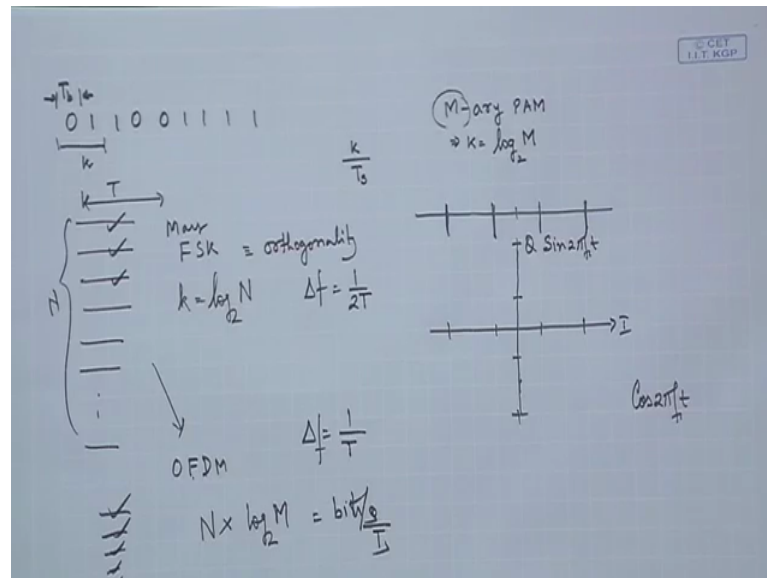 © CET
I.I.T. KGP
T_b
0 1 1 0 0 1 1 1 1
k
k/T_s
M-ary PAM
⇒ k = log_2 M
T
N
Mary
FSK ≡ orthogonality
k = log_2 N Δf = 1/2T
Q Sin2πf_c t
I
Cos2πf_c t
Δf = 1/T
OFDM
N × log_2 M = bits/